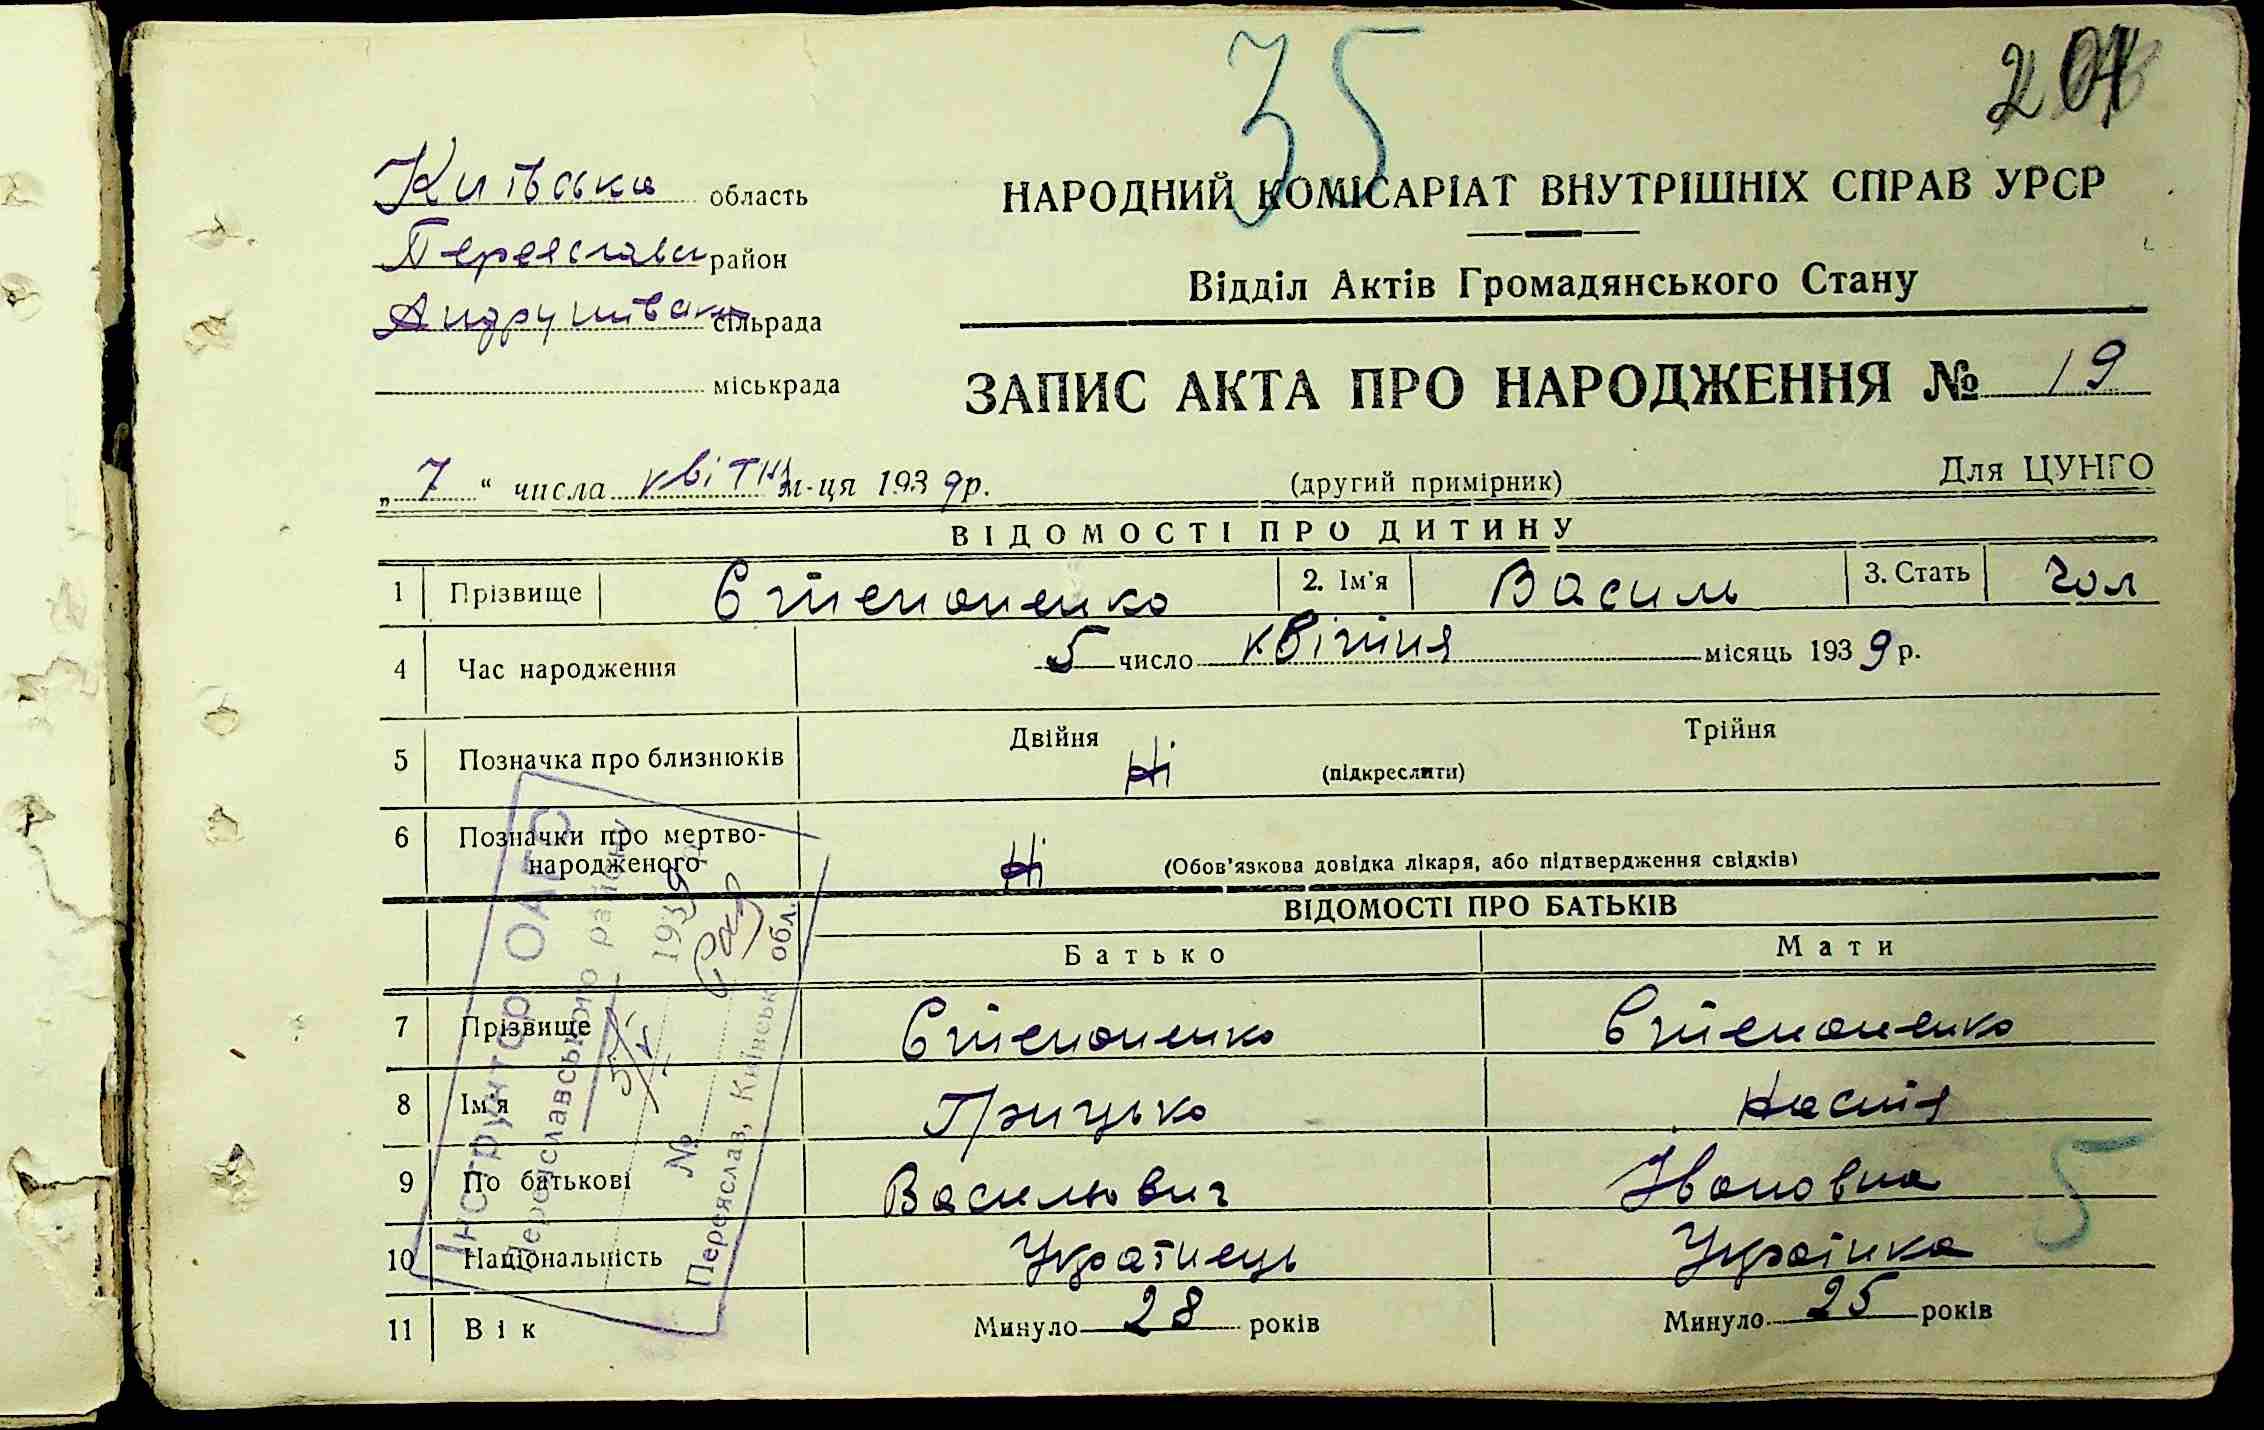 35
204
Київська область
Переяславськ район
Андрушівська сільрада
міськрада
НАРОДНИЙ КОМІСАРІАТ ВНУТРІШНІХ СПРАВ УРСР
Відділ Актів Громадянського Стану
ЗАПИС АКТА ПРО НАРОДЖЕННЯ № 19
„ 7 “ числа квітня м-ця 1939 р.
(другий примірник)
Для ЦУНГО
ВІДОМОСТІ ПРО ДИТИНУ
1 Прізвище Єтепоненко 2. Ім'я Василь 3. Стать чол
4 Час народження 5 число квітня місяць 1939 р.
5 Позначка про близнюків Двійня Ні (підкреслити) Трійня
6 Позначки про мертвонародженого Ні (Обов'язкова довідка лікаря, або підтвердження свідків)
ВІДОМОСТІ ПРО БАТЬКІВ
Батько Мати
7 Прізвище Єтепоненко Єтепоненко
8 Ім'я Грицько Настя
9 По батькові Васильович Івановна
10 Національність Українець Українка
11 Вік Минуло 28 років Минуло 25 років
5
Інструктор ОАГС
Переяславського району
1939
№
Переяслав, Київськ. обл.